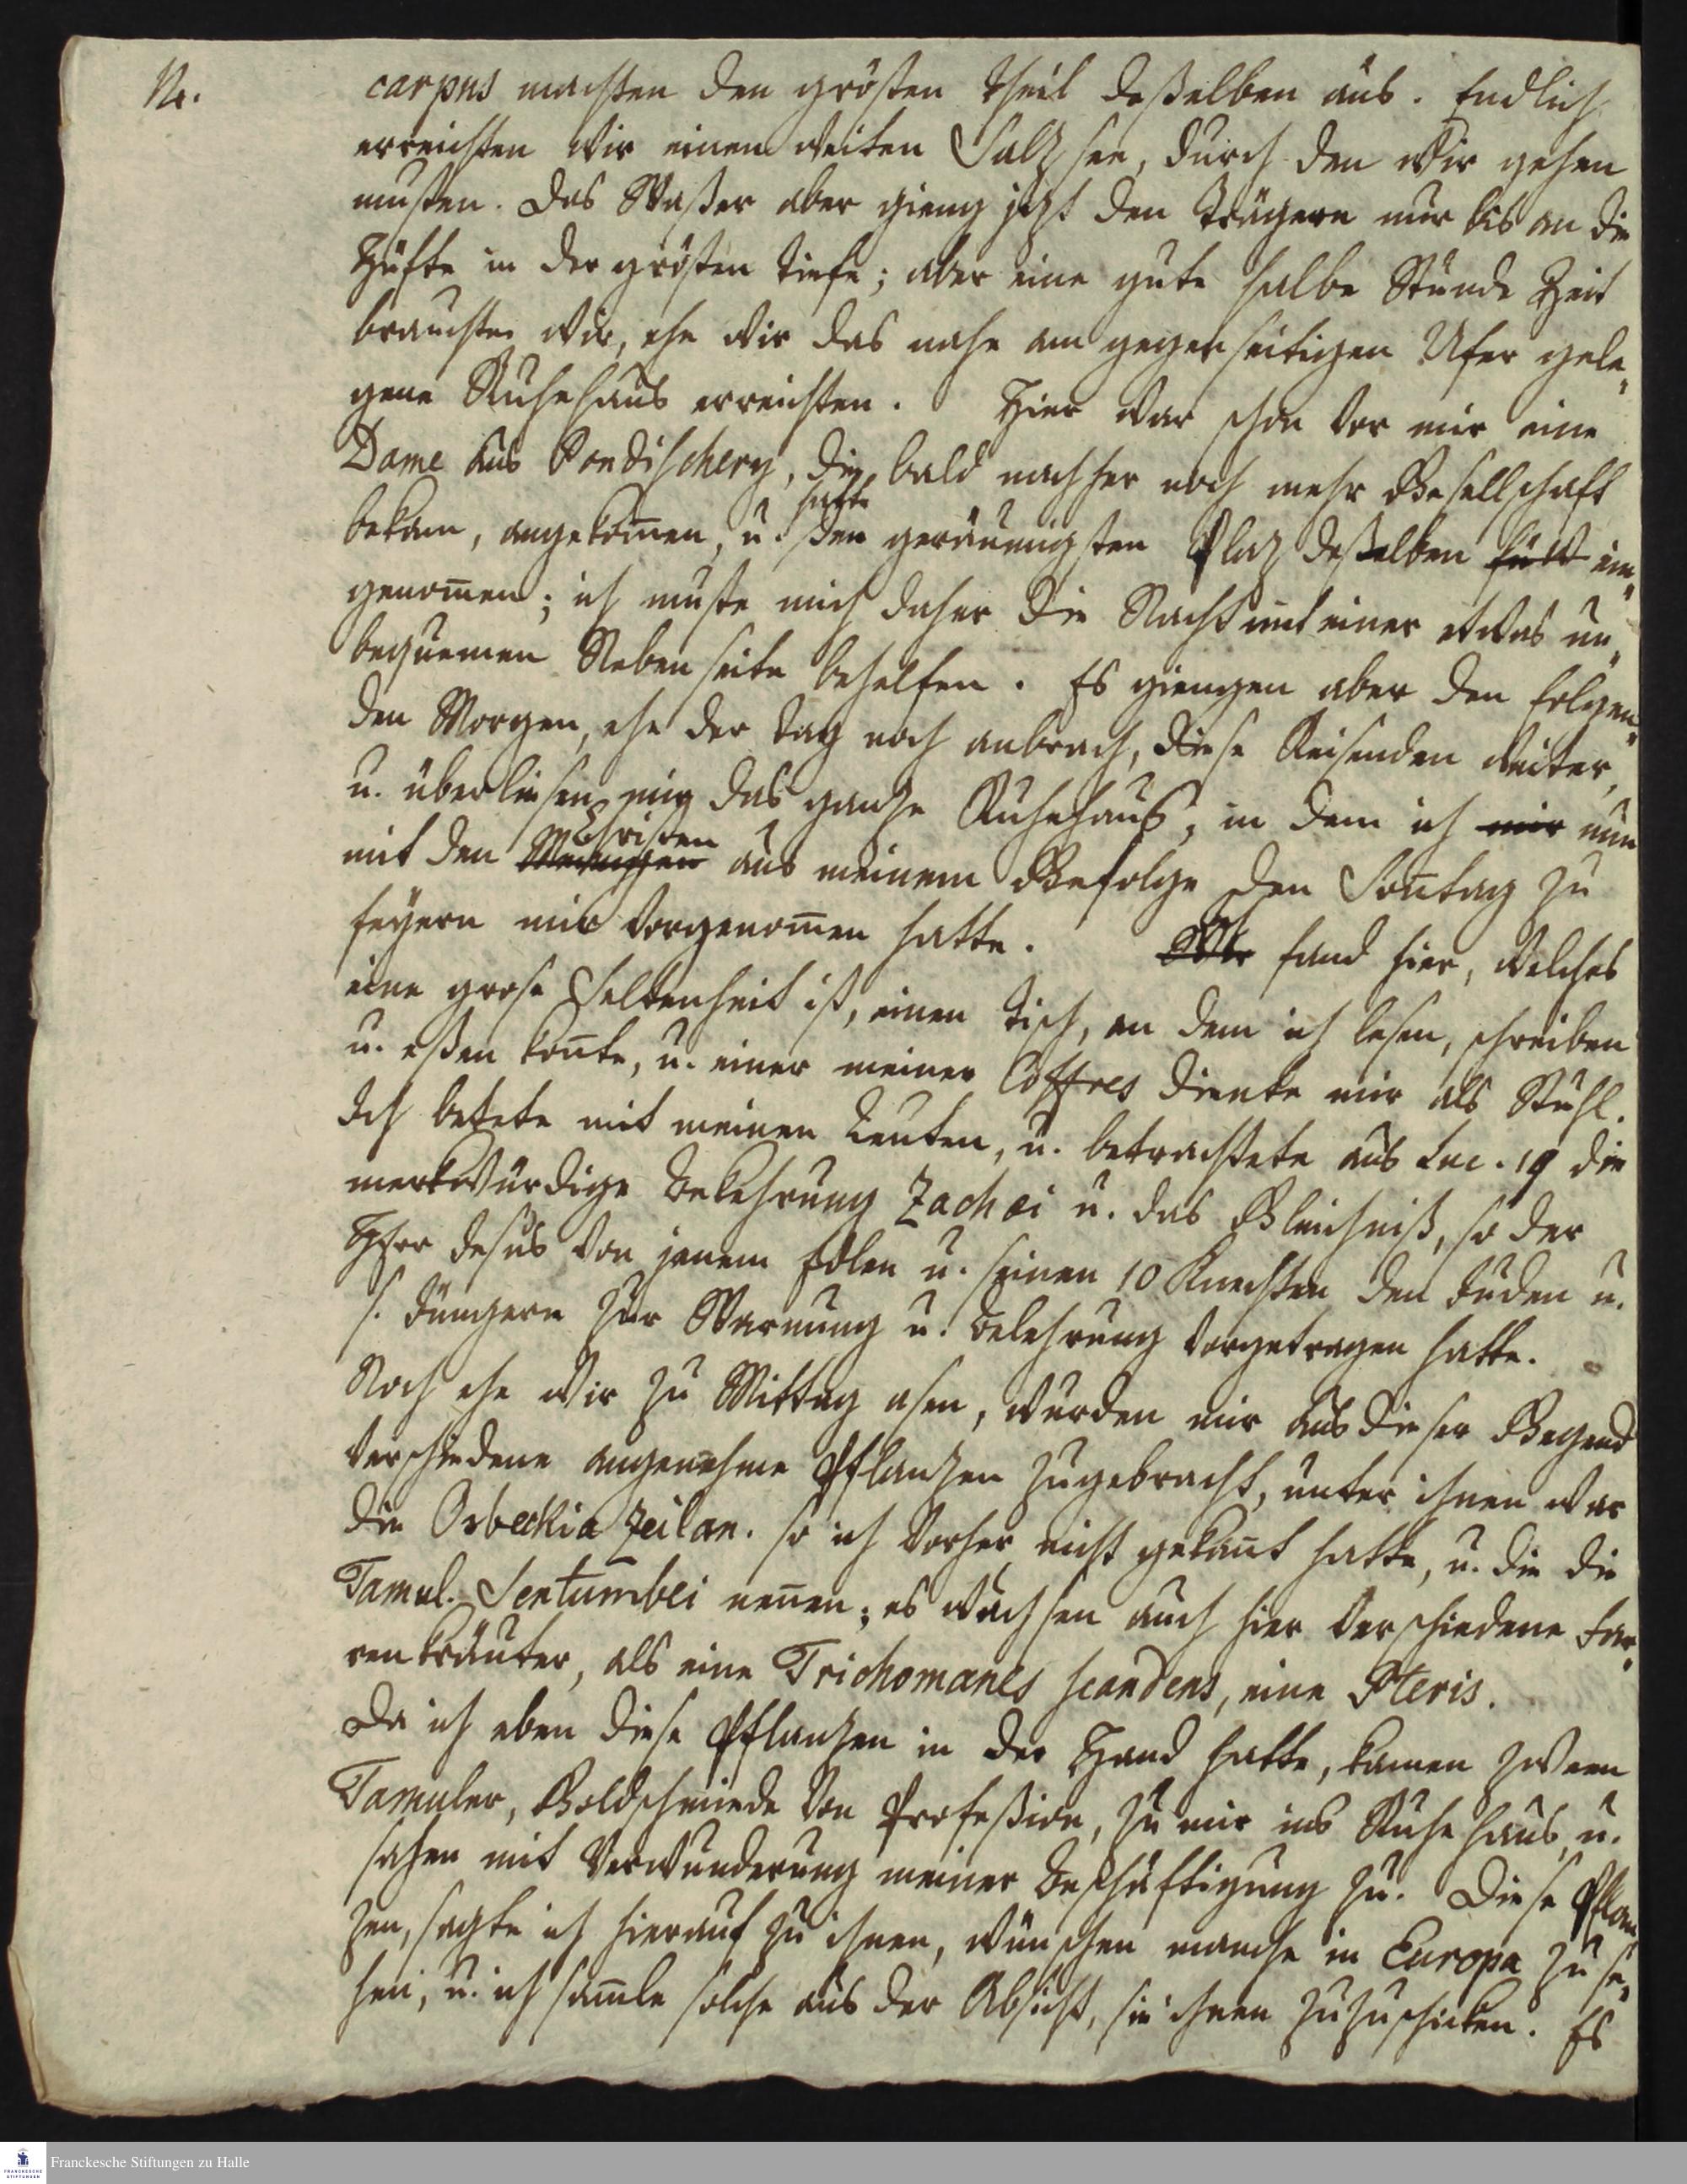 Nr.
carpus machten den grösten Theil deßelben aus. Endlich
erreichten wir einen weiten Salzsee, durch den wir gehen
musten. Das Waßer aber gieng jezt den Trägern nur bis an die
Hüfte in der grösten Tiefe; aber eine gute halbe Stunde Zeit
brauchten wir, ehe wir das nahe am gegenseitigen Ufer gele„
gene Ruhehaus erreichten. Hier war schon vor mir eine
Dame aus Pondischery, die bald nachher noch mehr Gesellschaft
hatte
bekam, angekom̄en, u. den geräumigsten Plaz deßelben ein„
genom̄en; ich muste mich daher die Nacht mit einer etwas un„
bequemen Nebenseite behelfen. Es giengen aber den folgen„
den Morgen, ehe der Tag noch anbrach, diese Reisenden weiter,
u. überliesen mir das ganze Ruhehaus, in dem ich mir nun
Christen
mit den aus meinem Gefolge den Son̄tag zu
feyern mir vorgenom̄en hatte. Ich fand hier, welches
eine grose Seltenheit ist, einen Tisch, an dem ich lesen, schreiben
u. eßen kon̄te, u. einer meiner Coffres diente mir als Stuhl.
Ich betete mit meinen Leuten, u. betrachtete aus Luc. 19 die
merkwürdige Bekehrung Zachæi u. das Gleichniß, so der
Herr Jesus von jenem Edlen u. seinen 10 Knechten den Juden u.
s. Jüngern zur Warnung u. Belehrung vorgetragen hatte.
Noch ehe wir zu Mittag asen, wurden mir aus dieser Gegend
verschiedene angenehme Pflanzen zugebracht, unter ihnen war
die Osbeckia zeilan. so ich vorher nicht gekan̄t hatte, u. die die
Tamul. Sentumbei nen̄en; es wachsen auch hier verschiedene Far„
renkräuter, als eine Trichomanes scandens, eine Pteris.
Da ich eben diese Pflanzen in der Hand hatte, kamen zween
Tamuler, Goldschmiede von Profeßion, zu mir ins Ruhehaus, u.
sahen mit Verwunderung meiner Beschäftigung zu. Diese Pflan„
zen, sagte ich hierauf zu ihnen, wünschen manche in Europa zu se„
hen, u. ich sam̄le solche aus der Absicht, sie ihnen zuzuschicken. Es
Franckesche Stiftungen zu Halle